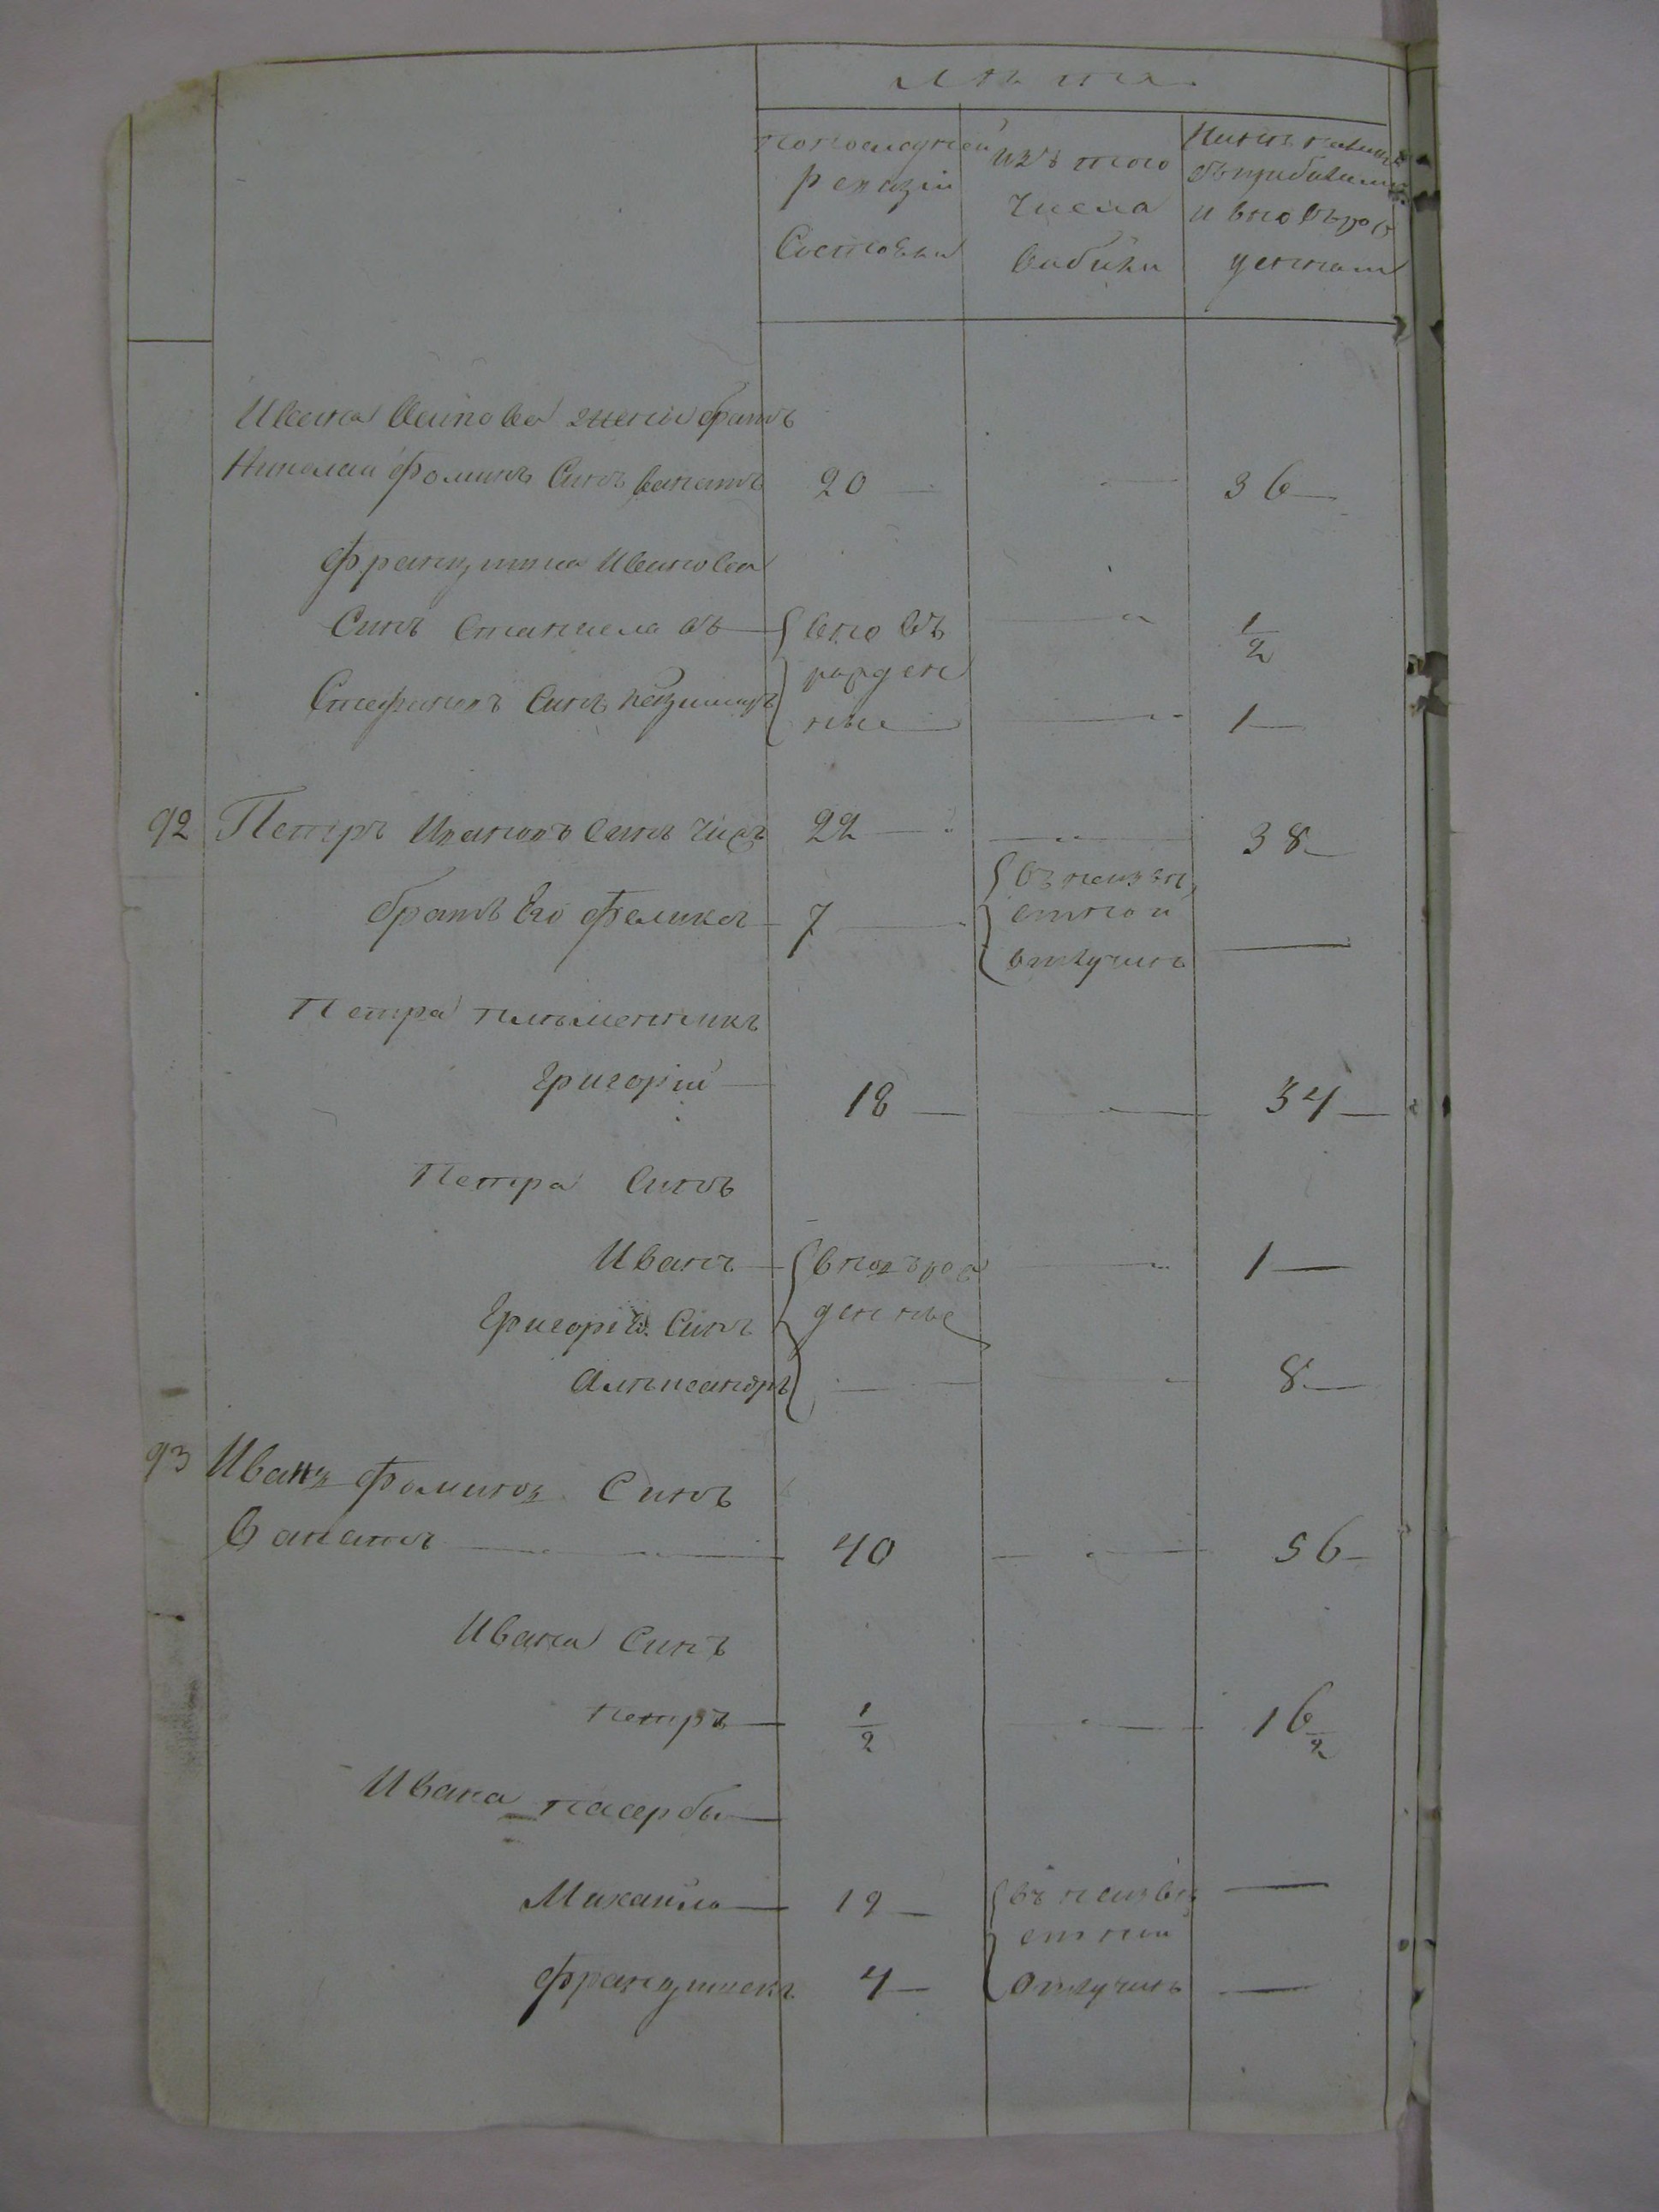 Лѣта
попоследней
ревизіи
Состояли
изъ того
числа
выбыли
Нынѣ налицо
съ прибылыми
и вновьрож
денными
Ивана Осипова зненій братъ
Николай Фоминъ Сынъ 20 — 36
Францишка Иванова
Сынъ Станиславъ — вновь ½
рожден
Стефановъ Сынъ Казимиръ ные 1
92 Петръ Ивановъ Сынъ 22 — 38
братъ Его Феликсъ 7 — въ неизвѣ
стной
отлучкѣ —
Петра племенникъ
Григорій — 18 — 34 —
Петра Сынъ
Иванъ — вновьрож 1 —
Григорія Сынъ денные
Александръ — 8 —
93 Иванъ Фоминъ Сынъ
40 — 56 —
Ивана Сынъ
Петръ — ½ — 16½
Ивана пасербы —
Михайло — 19 — въ неизвѣ —
стной
Францишекъ 4 — отлучкѣ —